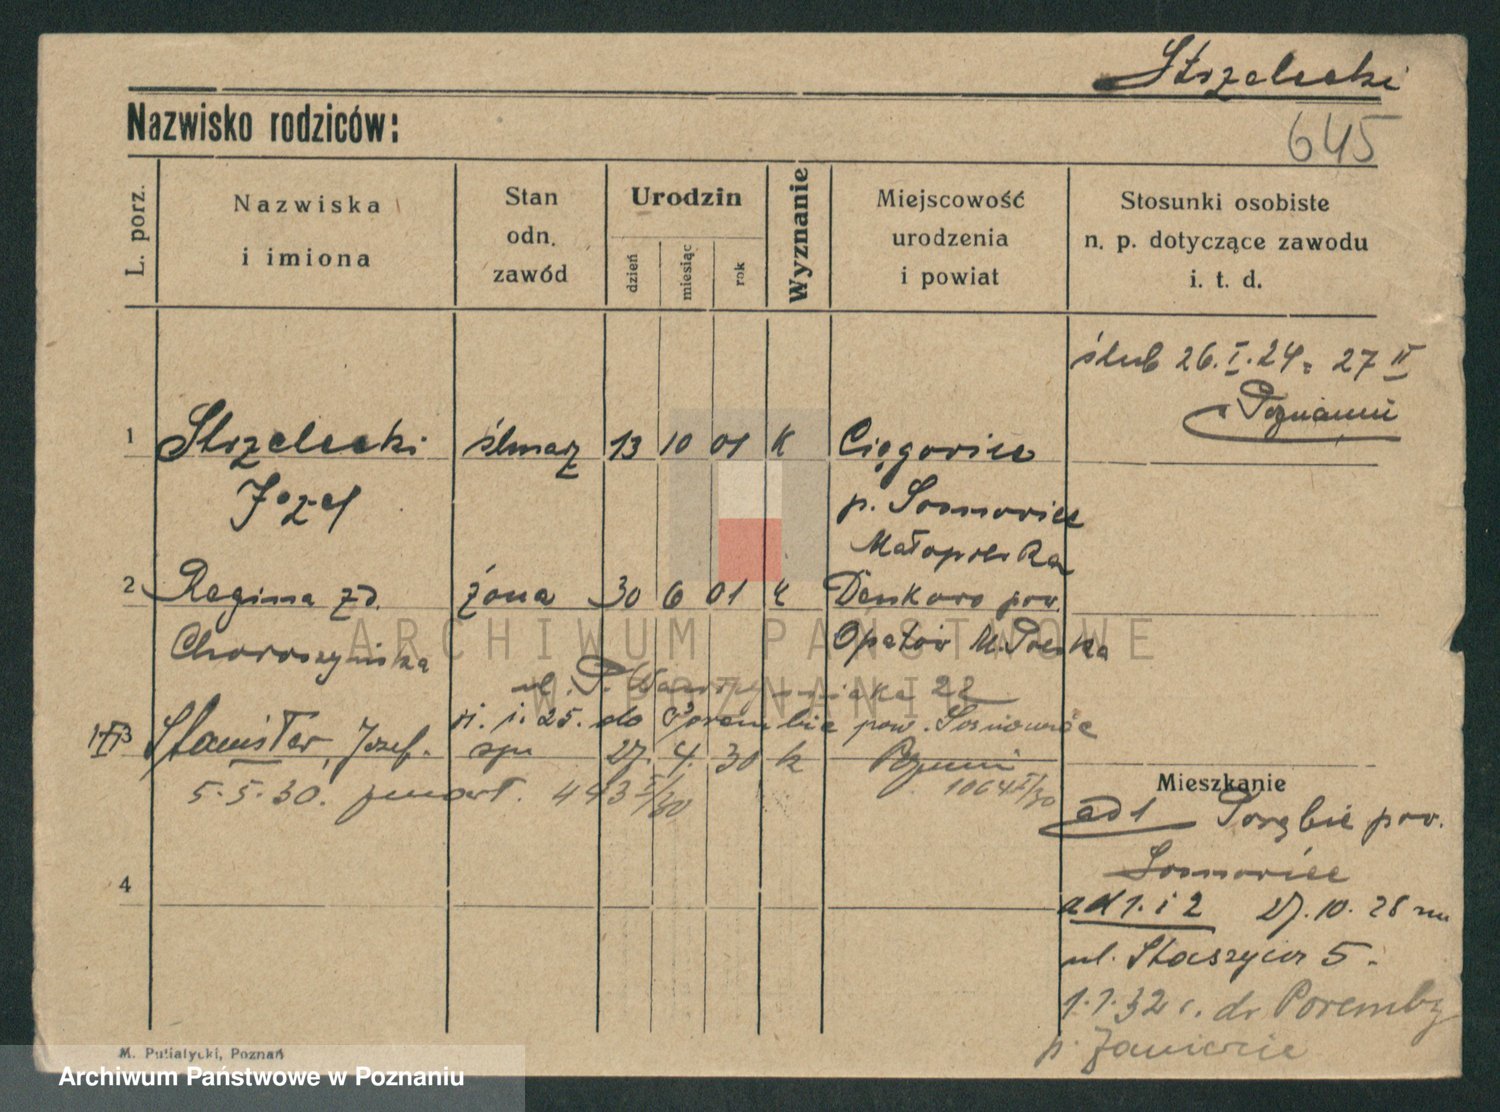 Strzelecki
Nazwisko rodziców:
645
L. porz.
Nazwiska
i imiona
Stan
odn.
zawód
Urodzin
dzień
miesiąc
rok
Wyznanie
Miejscowość
urodzenia
i powiat
Stosunki osobiste
n. p. dotyczące zawodu
i. t. d.
ślub 26. I. 24 = 27 II
Poznaniu
1 Strzelecki ślusarz 13 10 01 K
Józef
p. Sosnowiec
Małopolska
2 Regina zd. żona 30 6 01 K Denkowo pow.
Choroszyńska Opatów M. Polska
ARCHIWUM PAŃSTWOWE
W POZNANIU
22
25. do Porembie pow. Sosnowiec
3 Stanisław, Józef. syn 27. 4. 30 k
5.5.30. zmarł. 443 I/30
1064 I/30
Mieszkanie
ad 1 Porębie pow.
Sosnowiec
4
ad 1. i 2 27. 10. 28
ul. Staszyca 5.
1.1.32 Poremby
p. Zawiercie
M. Putiatycki, Poznań
Archiwum Państwowe w Poznaniu